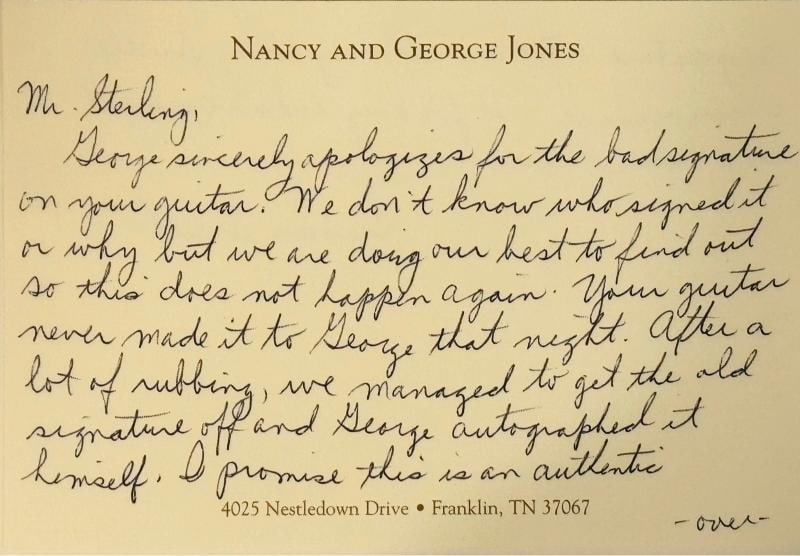 NANCY AND GEORGE JONES
Mr. Sterling,
George sincerely apologizes for the bad signature
on your guitar. We don't know who signed it
or why but we are doing our best to find out
so this does not happen again. Your guitar
never made it to George that night. After a
lot of rubbing, we managed to get the old
signature off and George autographed it
hemself. I promise this is an authentic
4025 Nestledown Drive • Franklin, TN 37067
-over-